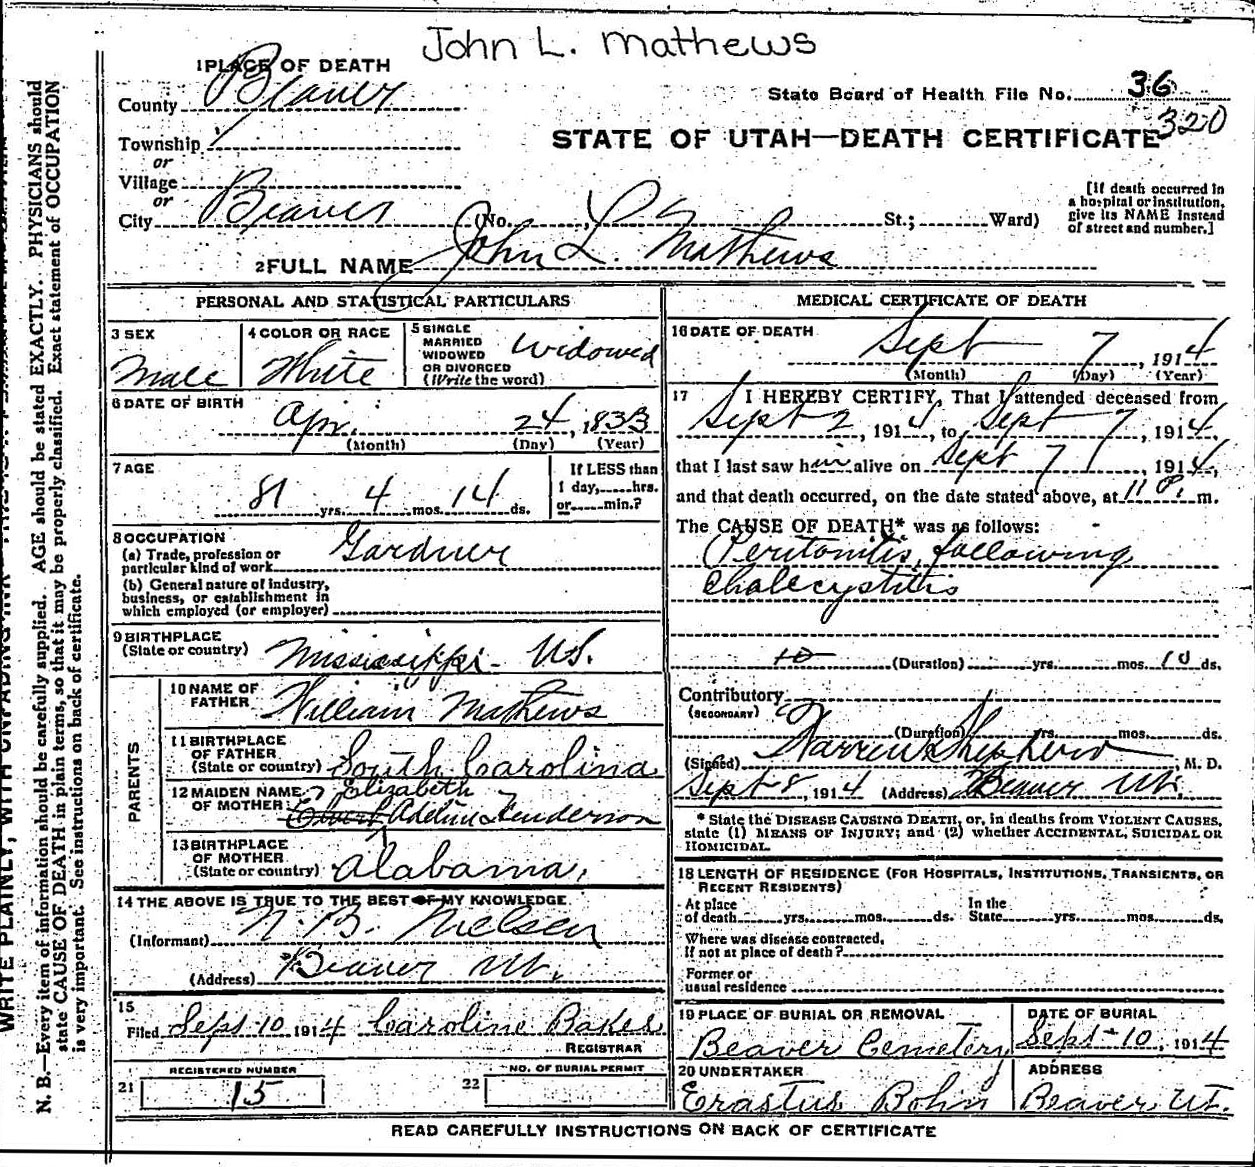 John L. Mathews
1 PLACE OF DEATH
County Beaver
State Board of Health File No. 36
320
Township
or
Village
or
City Beaver
STATE OF UTAH—DEATH CERTIFICATE
(No. St.; Ward)
[If death occurred in a hospital or institution, give its NAME instead of street and number.]
2 FULL NAME John L. Mathews
PERSONAL AND STATISTICAL PARTICULARS
3 SEX Male
4 COLOR OR RACE White
5 SINGLE MARRIED WIDOWED OR DIVORCED (Write the word) Widowed
6 DATE OF BIRTH Apr. 24, 1833
(Month) (Day) (Year)
7 AGE 81 yrs. 4 mos. 14 ds.
If LESS than 1 day, hrs. or min.?
8 OCCUPATION
(a) Trade, profession or particular kind of work Gardner
(b) General nature of industry, business, or establishment in which employed (or employer)
9 BIRTHPLACE (State or country) Mississippi - US.
PARENTS
10 NAME OF FATHER William Mathews
11 BIRTHPLACE OF FATHER (State or country) South Carolina
12 MAIDEN NAME OF MOTHER Elizabeth Adeline Henderson
13 BIRTHPLACE OF MOTHER (State or country) Alabama.
14 THE ABOVE IS TRUE TO THE BEST OF MY KNOWLEDGE
(Informant) N. B. Nielsen
(Address) Beaver Ut.
15
Filed Sept 10 1914 Caroline Baker
REGISTRAR
21 REGISTERED NUMBER 15
22 NO. OF BURIAL PERMIT
MEDICAL CERTIFICATE OF DEATH
16 DATE OF DEATH Sept 7, 1914
(Month) (Day) (Year)
17 I HEREBY CERTIFY, That I attended deceased from
Sept 2, 1914, to Sept 7, 1914,
that I last saw him alive on Sept 7, 1914,
and that death occurred, on the date stated above, at 11 P. m.
The CAUSE OF DEATH* was as follows:
Peritonitis, following
Cholecystitis
10 (Duration) yrs. mos. 10 ds.
Contributory
(SECONDARY)
(Duration) yrs. mos. ds.
(Signed) Warren Shepherd, M. D.
Sept 8, 1914 (Address) Beaver Ut.
* State the DISEASE CAUSING DEATH, or, in deaths from VIOLENT CAUSES, state (1) MEANS OF INJURY; and (2) whether ACCIDENTAL, SUICIDAL OR HOMICIDAL.
18 LENGTH OF RESIDENCE (FOR HOSPITALS, INSTITUTIONS, TRANSIENTS, OR RECENT RESIDENTS)
At place of death yrs. mos. ds. In the State yrs. mos. ds.
Where was disease contracted, If not at place of death?
Former or usual residence
19 PLACE OF BURIAL OR REMOVAL
Beaver Cemetery
DATE OF BURIAL
Sept-10, 1914
20 UNDERTAKER
Erastus Bohn
ADDRESS
Beaver Ut.
READ CAREFULLY INSTRUCTIONS ON BACK OF CERTIFICATE
WRITE PLAINLY, WITH UNFADING INK
N. B.—Every item of information should be carefully supplied. AGE should be stated EXACTLY. PHYSICIANS should
state CAUSE OF DEATH in plain terms, so that it may be properly classified. Exact statement of OCCUPATION
is very important. See instructions on back of certificate.